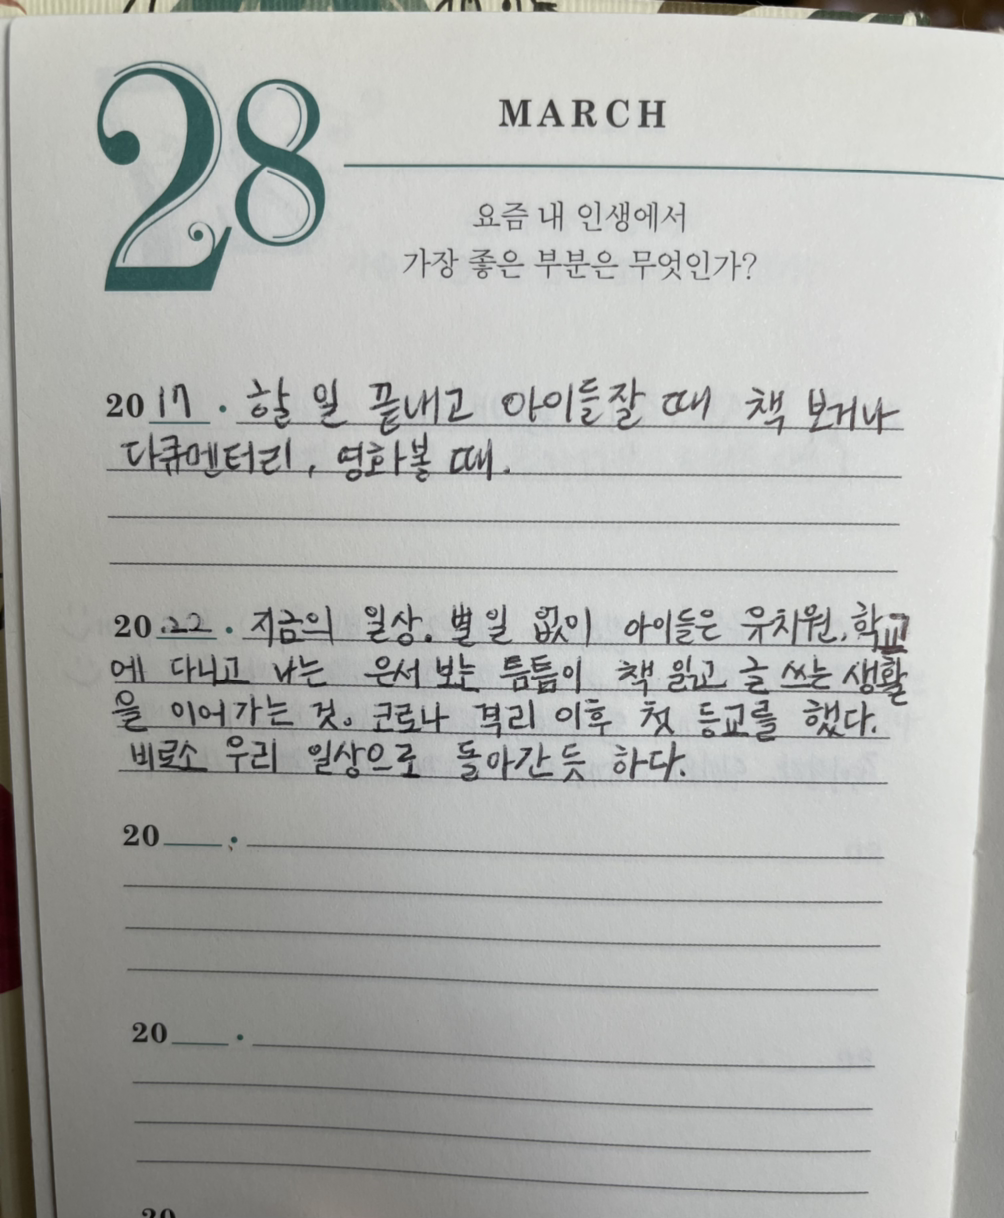 28
MARCH
요즘 내 인생에서
가장 좋은 부분은 무엇인가?
20 17 . 할 일 끝내고 아이들잘 때 책 보거나
다큐멘터리, 영화볼 때.
20 .22 . 지금의 일상. 별일 없이 아이들은 유치원, 학교
에 다니고 나는 은서 보는 틈틈이 책 읽고 글 쓰는 생활
을 이어가는 것. 코로나 격리 이후 첫 등교를 했다.
비로소 우리 일상으로 돌아간 듯 하다.
20
20
20